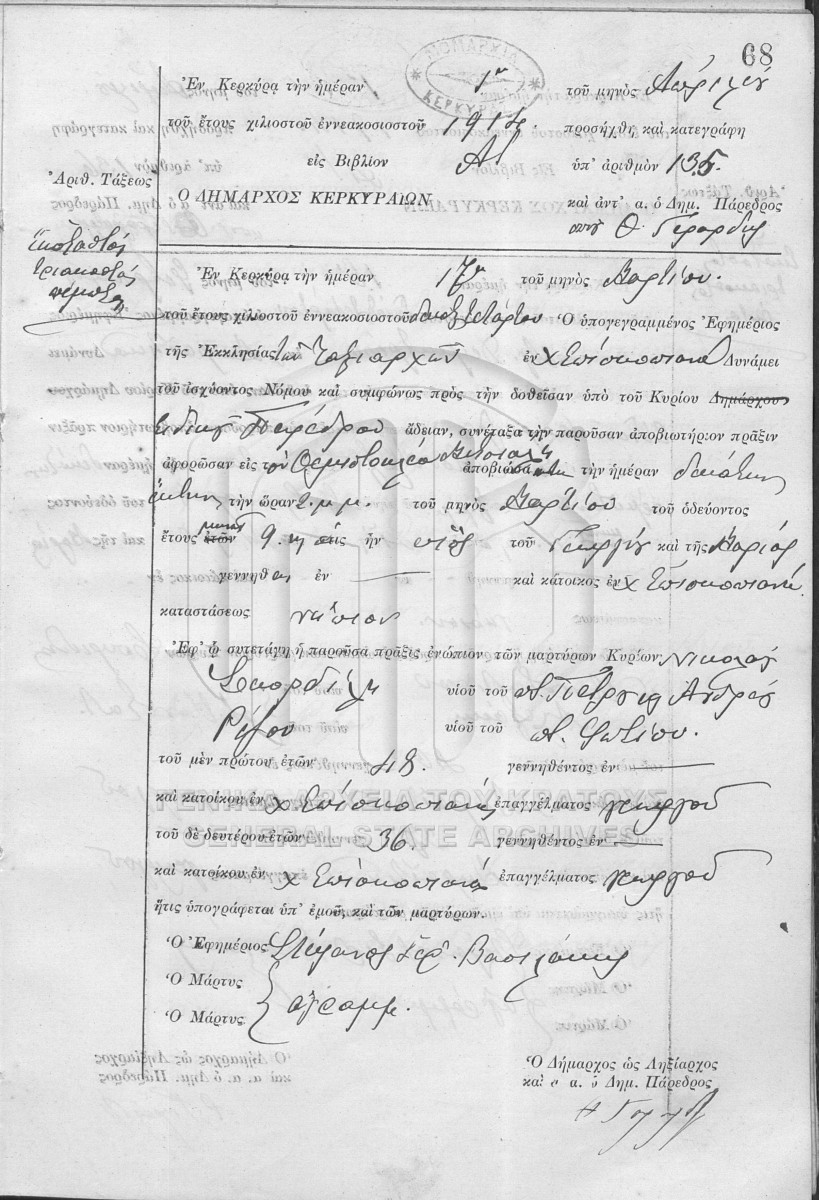 68
ΔΗΜΑΡΧΙΑ
ΚΕΡΚΥΡΑΙΩΝ
Ἐν Κερκύρᾳ τὴν ἡμέραν 1ην τοῦ μηνὸς Ἀπριλίου
τοῦ ἔτους χιλιοστοῦ ἐννεακοσιοστοῦ 1914. προσήχθη καὶ κατεγράφη
εἰς Βιβλίον Α΄ ὑπ' ἀριθμὸν 135.
Ἀριθ. Τάξεως
Ο ΔΗΜΑΡΧΟΣ ΚΕΡΚΥΡΑΙΩΝ καὶ ἀντ' α. ὁ Δημ. Πάρεδρος
Θ.
Ἑκατοστὸς
τριακοστὸς
πέμπτη
Ἐν Κερκύρᾳ τὴν ἡμέραν 17ην τοῦ μηνὸς Μαρτίου.
τοῦ ἔτους χιλιοστοῦ ἐννεακοσιοστοῦ δεκατετάρτου Ὁ ὑπογεγραμμένος Ἐφημέριος
τῆς Ἐκκλησίας τῶν Ταξιαρχῶν ἐν χ Ἐπισκοπιανά Δυνάμει
τοῦ ἰσχύοντος Νόμου καὶ συμφώνως πρὸς τὴν δοθεῖσαν ὑπὸ τοῦ Κυρίου Δημάρχου
Παρέδρου ἄδειαν, συνέταξα τὴν παροῦσαν ἀποβιωτήριον πρᾶξιν
ἀφορῶσαν εἰς τὸν Θεμιστοκλέα ἀποβιώσαντα τὴν ἡμέραν δεκάτην
ἕκτην τὴν ὥραν 2 μ.μ. τοῦ μηνὸς Μαρτίου τοῦ ὁδεύοντος
ἔτους ἐτῶν μηνῶν 9. υἱὸς τοῦ Γεωργίου καὶ τῆς Μαρίας
γεννηθεν ἐν — καὶ κάτοικος ἐν χ Ἐπισκοπιανά.
καταστάσεως νήπιον
Ἐφ' ᾧ συτετάγη ἡ παροῦσα πρᾶξις ἐνώπιον τῶν μαρτύρων Κυρίων Νικολάου
Σκορδίλη υἱοῦ τοῦ π. Πιέτρου καὶ Ἀνδρέου
Ρίζου υἱοῦ τοῦ π. Φωτίου.
τοῦ μὲν πρώτου ἐτῶν 48. γεννηθέντος ἐν —
καὶ κατοίκου ἐν χ. Ἐπισκοπιανά ἐπαγγέλματος γεωργοῦ
ΓΕΝΙΚΑ ΑΡΧΕΙΑ ΤΟΥ ΚΡΑΤΟΥΣ
GENERAL STATE ARCHIVES
τοῦ δὲ δευτέρου ἐτῶν 36. γεννηθέντος ἐν —
καὶ κατοίκου ἐν χ Ἐπισκοπιανά ἐπαγγέλματος γεωργοῦ
ἥτις ὑπογράφεται ὑπ' ἐμοῦ, καὶ τῶν μαρτύρων.
Ὁ Ἐφημέριος Στέφανος ἱερ. Βασιλάκης
Ὁ Μάρτυς
Ὁ Μάρτυς
ἀγραμμ.
Ὁ Δήμαρχος ὡς Ληξίαρχος
καὶ ἀ. α. ὁ Δημ. Πάρεδρος